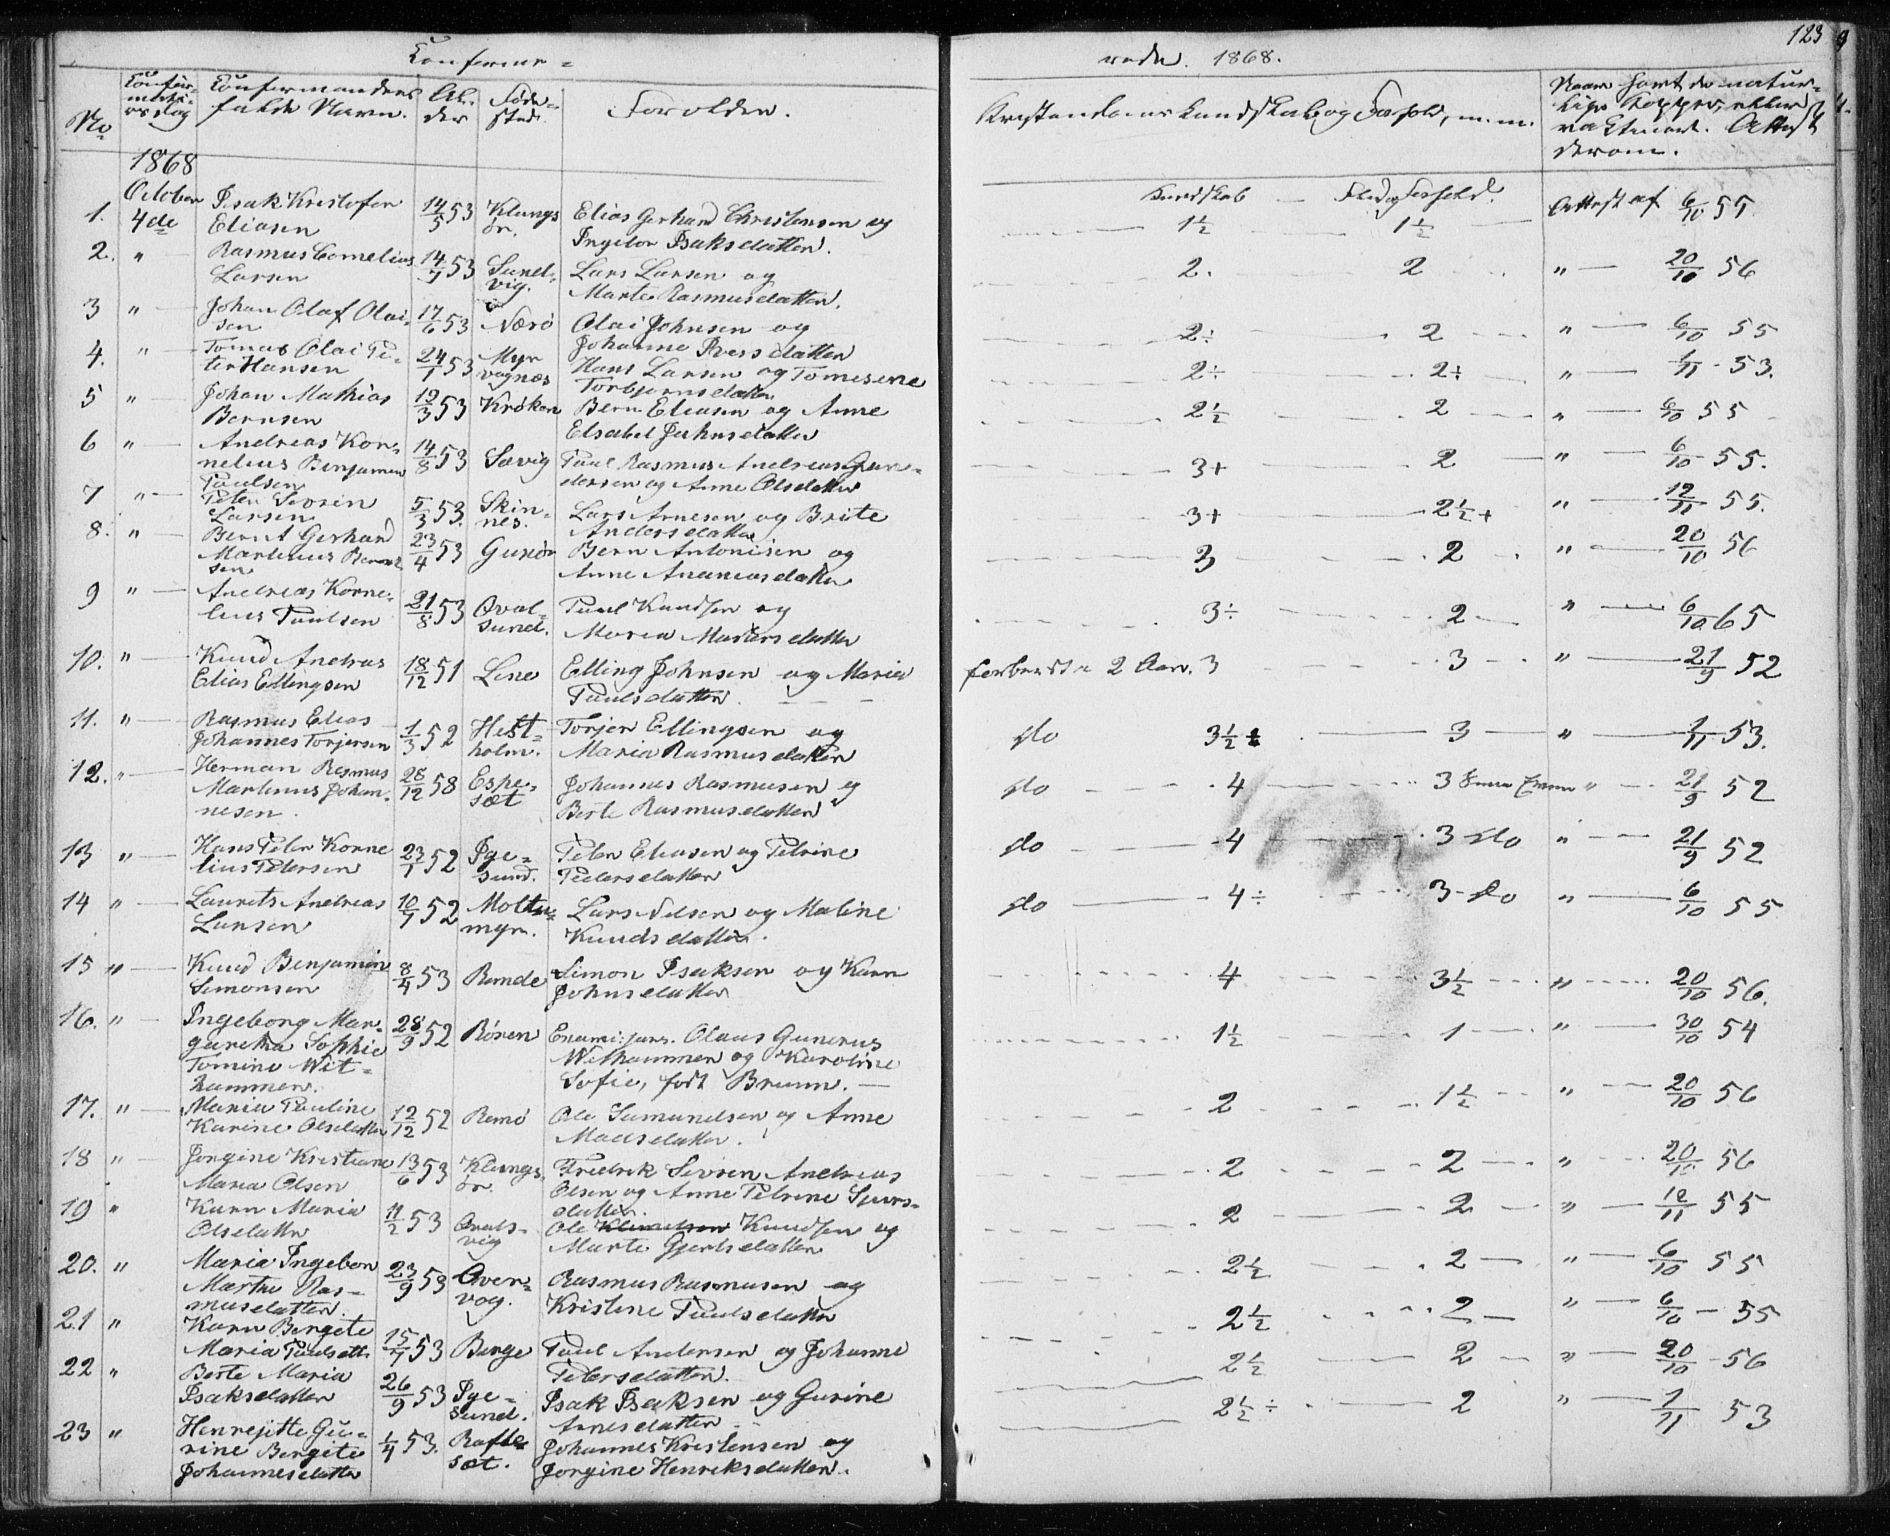 123
Konferme-
rede. 1868.
No
Konfir-
mati-
onsdag
Konfermandens
fulde Navn.
Al-
der
Føde-
sted.
Forældre.
Kristendoms Kundskab og Forhold, m.m.
Naar havt de natur-
lige Kopper, eller
vaksineret. Attest
derom.
1868
Kundskab Flid og Forhold.
1. October 4de Isak Kristofer Eliasen 14/5 53 Klungsör. Elias Gerhard Christensen og Ingebor Isaksdatter. 1½ 1½ Attest af 6/10 55
2. " Rasmus Cornelius Larsen 14/7 53 Sandvig. Lars Larsen og Marte Rasmusdatter. 2. 2 " 20/10 56
3 " Johan Olaf Olaisen 17/6 53 Nærö Olai Johnsen og Johanne Iversdatter 2÷ 2 " 6/10 55
4. " Tomas Olai PeterHansen 24/1 53 Myrvognæs Hans Larsen og Tomesene Torbjørnsdatter 2÷ 2÷ " 1/11 53.
5 " Johan Mathias Bernsen 19/3 53 Krøken Bern Eliasen og Anne Elsabet Johnsdatter 2½ 2 " 6/10 55
6 " Andreas Kornelius Benjamin Paulsen 14/8 53 Sævig Paul Rasmus Andreas Gundersen og Anne Olsdatter 3+ 2 " 6/10 55.
7 " Peter Severin Larsen 5/3 53. Skinnes. Lars Arnesen og Brite Andersdatter 3+ 2½+ " 12/11 55.
8. " Bernt Gerhard Martinus Berntsen 23/4 53 Gurör Bern Antonisen og Anne Ananiasdatter 3 2 " 20/10 56
9 " Andreas Kornelius Paulsen 21/8 53 Qvalsund. Paul Knudsen og Maria Martersdatter 3÷ 2 " 6/10 65
10. " Knud Andreas Elias Ellingsen 18/12 51 Lene Elling Johnsen og Maria Paulsdatter. forberedt i 2 Aar. 3 3 " 21/9 52
11. " Rasmus Elias Johannes Torjersen 1/3 52 Hestholm. Torjer Ellingsen og Maria Rasmusdatter do 3½ 3 " 1/11 53.
12. " Herman Rasmus Martinus Johannesen. 28/12 58 Espesæt Johannes Rasmusen og Berte Rasmusdatter do 4 3 " 21/9 52
13 " Hans Peter Kornelius Petersen 23/1 52 Igesund. Peter Eliasen og Petrine Pedersdatter do 4 3 do " 21/9 52
14 " Laurits Andreas Larsen 10/7 52 Moltumyr. Lars Nilsen og Maline Knudsdatter. do 4÷ 3 do " 6/10 55
15 " Knud Benjamin Simonsen 8/4 53 Runde Simon Isaksen og Karn Johnsdatter 4 3½ " 20/10 56.
16. " Ingeborg Margaretha Sophie Tomine Withammer. 28/9 52 Røren Exami: jurs. Olaus Gunerus Withammer og Karoline Sofie, født Bruun. 1½ 1 " 30/10 54
17. " Maria Pauline Karine Olsdatter 12/12 52 Remö Ole Samundsen og Anne Madsdatter. 2 1½ " 20/10 56
18 " Jorgine Kristiane Maria Olsen 13/6 53 Klungsör. Fredrik Sivren Andreas Olsen og Anne Petrine Sjursdatter. 2 2 " 20/10 56
19 " Karn Maria Olsdatter 11/2 53 Qvalsvig Ole Knudsen og Marte Gjertsdatter 2 2 " 12/11 55
20. " Maria Ingebor Marthe Rasmusdatter. 23/9 53 Overvog. Rasmus Rasmusen og Kristine Paulsdatter 2½ 2 " 6/10 55
21 " Karn Bergete Maria Paulsdtt. 15/7 53 Berge Paul Andersen og Johanne Petersdatter. 2½ 2 " 6/10 55
22 " Berte Maria Isaksdatter 26/9 53 Igesund. Isak Isaksen og Gurine Arnesdatter 2½ 2 " 20/10 56
23 " Henrejitte Gurine Bergite Johannesdatter 1/4 53. Raftesæt. Johannes Kristensen og Jorgine Henriksdatter. 2½÷ 2 " 1/11 53